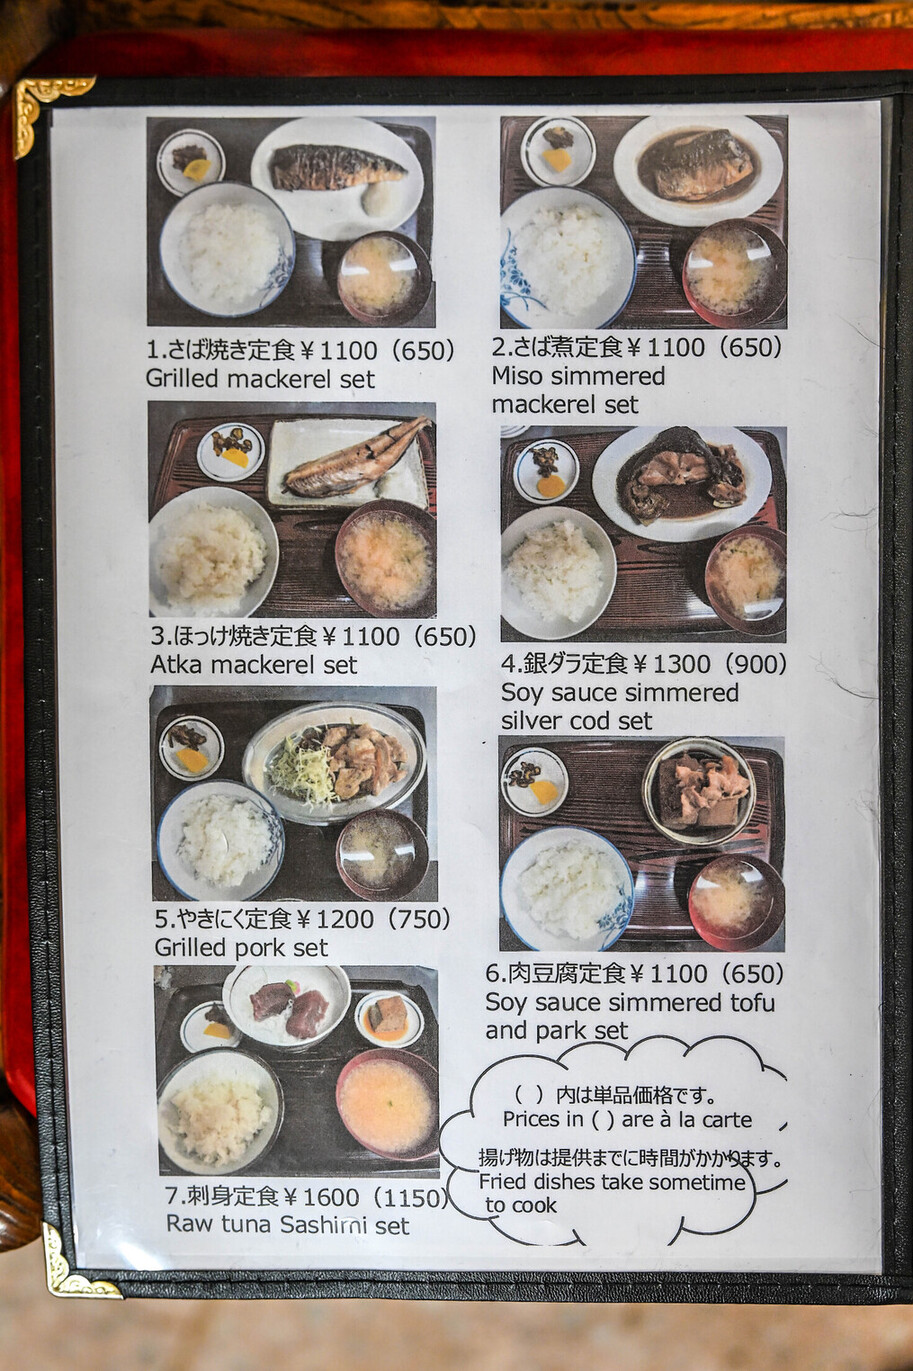 1.さば焼き定食￥1100（650）
Grilled mackerel set
2.さば煮定食￥1100（650）
Miso simmered
mackerel set
3.ほっけ焼き定食￥1100（650）
Atka mackerel set
4.銀ダラ定食￥1300（900）
Soy sauce simmered
silver cod set
5.やきにく定食￥1200（750）
Grilled pork set
6.肉豆腐定食￥1100（650）
Soy sauce simmered tofu
and park set
7.刺身定食￥1600（1150）
Raw tuna Sashimi set
（ ）内は単品価格です。
Prices in ( ) are à la carte
揚げ物は提供までに時間がかかります。
Fried dishes take sometime
to cook